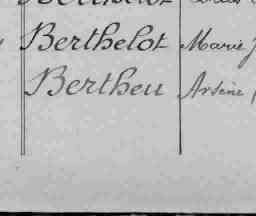 Berthelot Marie J
Bertheu Arsène